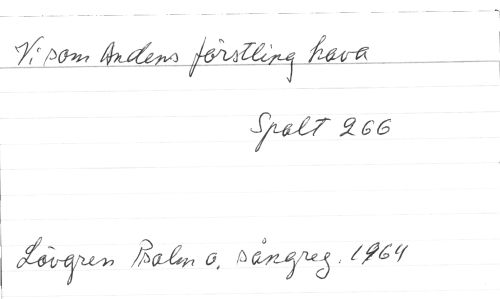 Vi som Andens förstling hava
Spalt 266
Lövgren Psalm o. sångreg. 1964